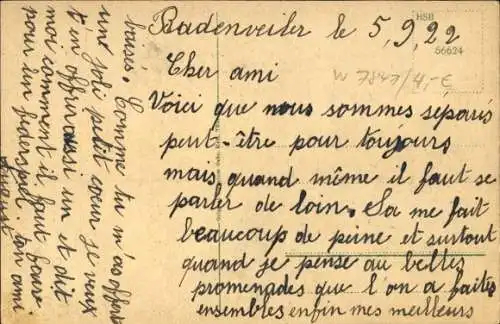 Badenveiler le 5,9,22
HSB
56624
W 7847/4,-€
Cher ami
Voici que nous sommes separis
peut-être pour toujours
mais quand même il faut se
parler de loin. Sa me fait
beaucoup de peine et surtout
quand je pense au belles
promenades que l'on a faites
ensembles enfin mes meilleurs
baisés. Comme tu m'as offert
un joli petit coeur je veux
t'en offrir aussi un et dit
moi comment il faut
pour un
ton ami
August